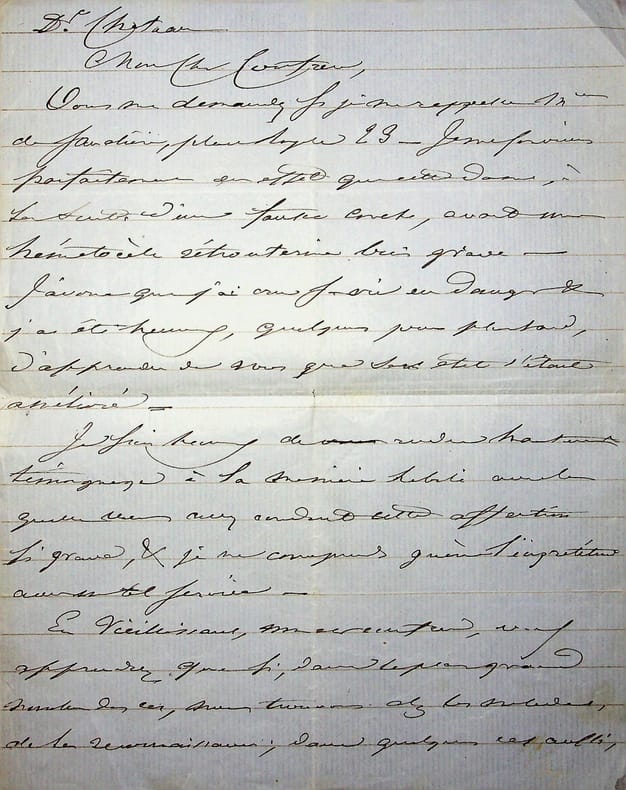 Dr Chateau
Mon Cher Confrère,
Vous me demandez si je me rappelle Mme
de place 23 — Je me souviens
parfaitement en effet que cette dame, à
la suite d'une fausse couche, avait une
hématocèle rétroutérine très grave —
J'avoue que j'ai cru sa vie en danger &
j'ai été heureux, quelques jours plus tard,
d'apprendre de vous que son état s'était
amélioré —
Je suis heureux de rendre hautement
témoignage à la manière habile avec la
quelle vous avez conduit cette affection
si grave, & je ne comprends guère l'ingratitude
avec un tel service —
En vieillissant, mon cher confrère, vous
apprendrez que si, dans le plus grand
nombre des cas, nous trouvons chez les malades,
de la reconnaissance; dans quelques cas aussi,